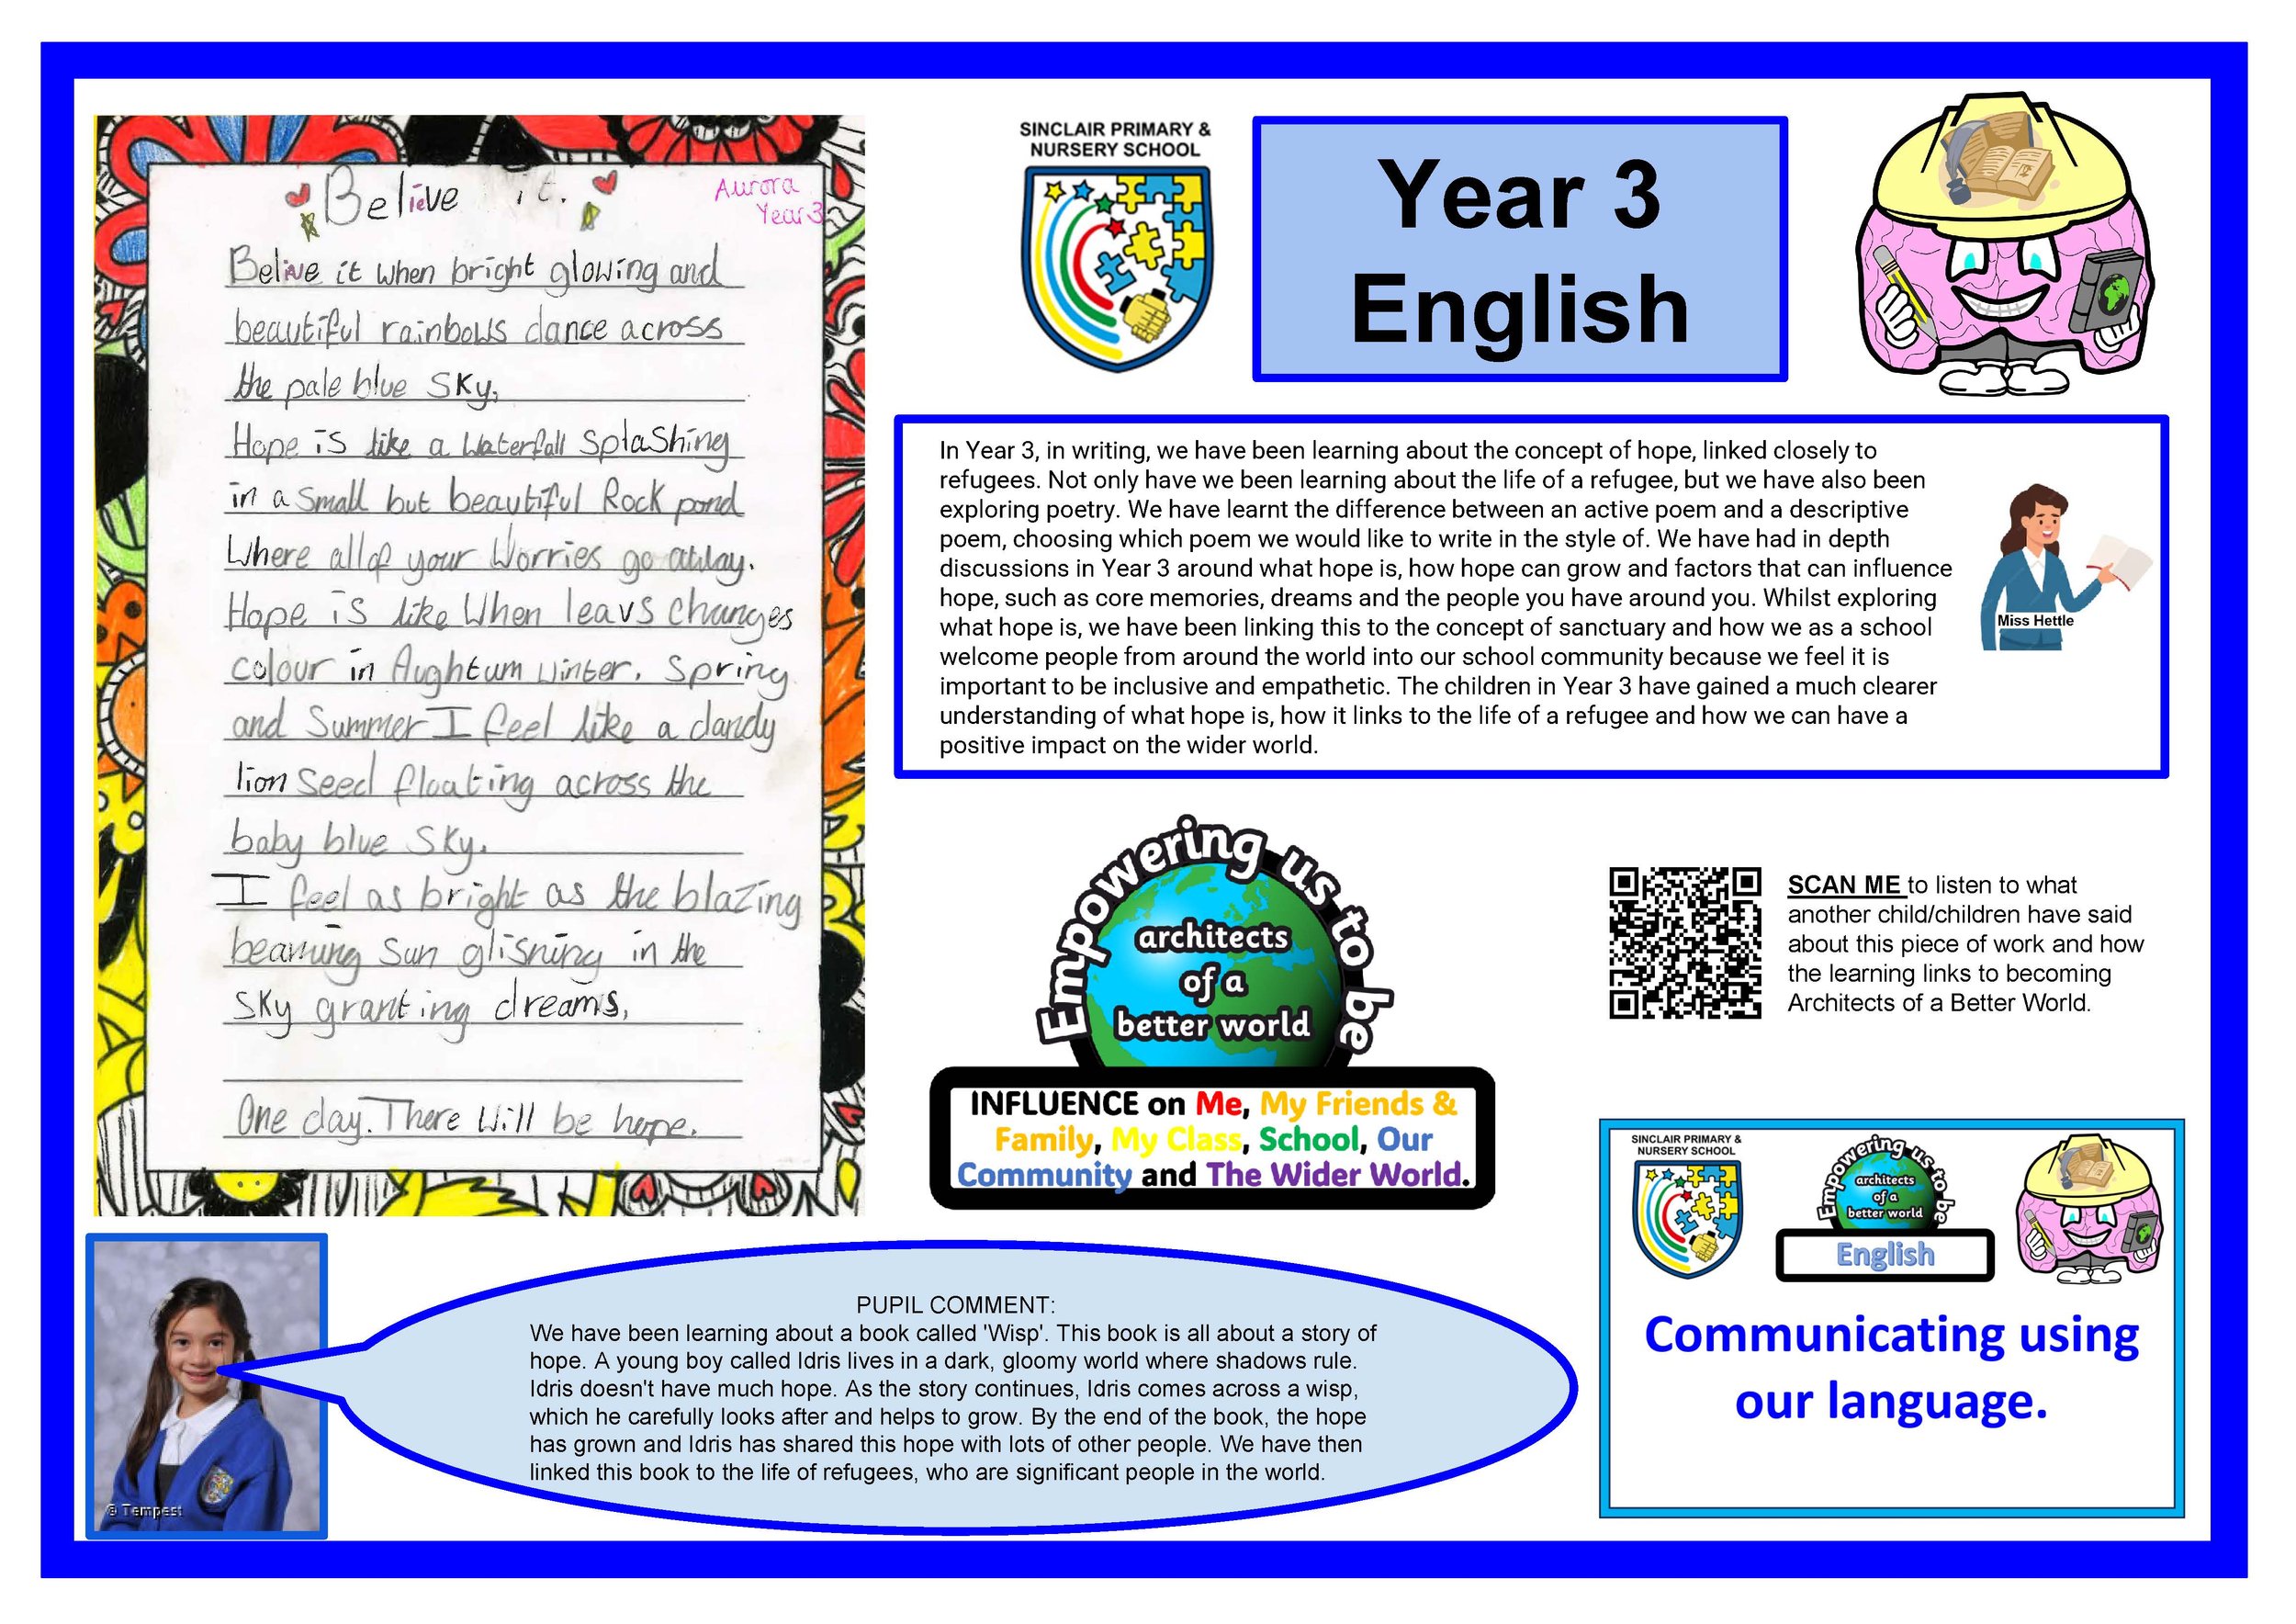 Believe it.
Aurora
Year 3
Belive it when bright glowing and
beautiful rainbows dance across
the pale blue Sky,
Hope is like a Waterfall Splashing
in a small but beautiful Rock pond
Where all of your Worries go away.
Hope is like When leavs changes
colour in Aughtum winter, Spring
and Summer I feel like a dandy
lion seed floating across the
baby blue Sky.
I feel as bright as the blazing
beaming sun glisning in the
Sky granting dreams,
One day. There Will be hope.
SINCLAIR PRIMARY &
NURSERY SCHOOL
Year 3
English
In Year 3, in writing, we have been learning about the concept of hope, linked closely to
refugees. Not only have we been learning about the life of a refugee, but we have also been
exploring poetry. We have learnt the difference between an active poem and a descriptive
poem, choosing which poem we would like to write in the style of. We have had in depth
discussions in Year 3 around what hope is, how hope can grow and factors that can influence
hope, such as core memories, dreams and the people you have around you. Whilst exploring
what hope is, we have been linking this to the concept of sanctuary and how we as a school
welcome people from around the world into our school community because we feel it is
important to be inclusive and empathetic. The children in Year 3 have gained a much clearer
understanding of what hope is, how it links to the life of a refugee and how we can have a
positive impact on the wider world.
Miss Hettle
Empowering us to be
architects
of a
better world
INFLUENCE on Me, My Friends &
Family, My Class, School, Our
Community and The Wider World.
SCAN ME to listen to what
another child/children have said
about this piece of work and how
the learning links to becoming
Architects of a Better World.
PUPIL COMMENT:
We have been learning about a book called 'Wisp'. This book is all about a story of
hope. A young boy called Idris lives in a dark, gloomy world where shadows rule.
Idris doesn't have much hope. As the story continues, Idris comes across a wisp,
which he carefully looks after and helps to grow. By the end of the book, the hope
has grown and Idris has shared this hope with lots of other people. We have then
linked this book to the life of refugees, who are significant people in the world.
© Tempest
SINCLAIR PRIMARY &
NURSERY SCHOOL
Empowering us to be
architects
of a
better world
English
Communicating using
our language.